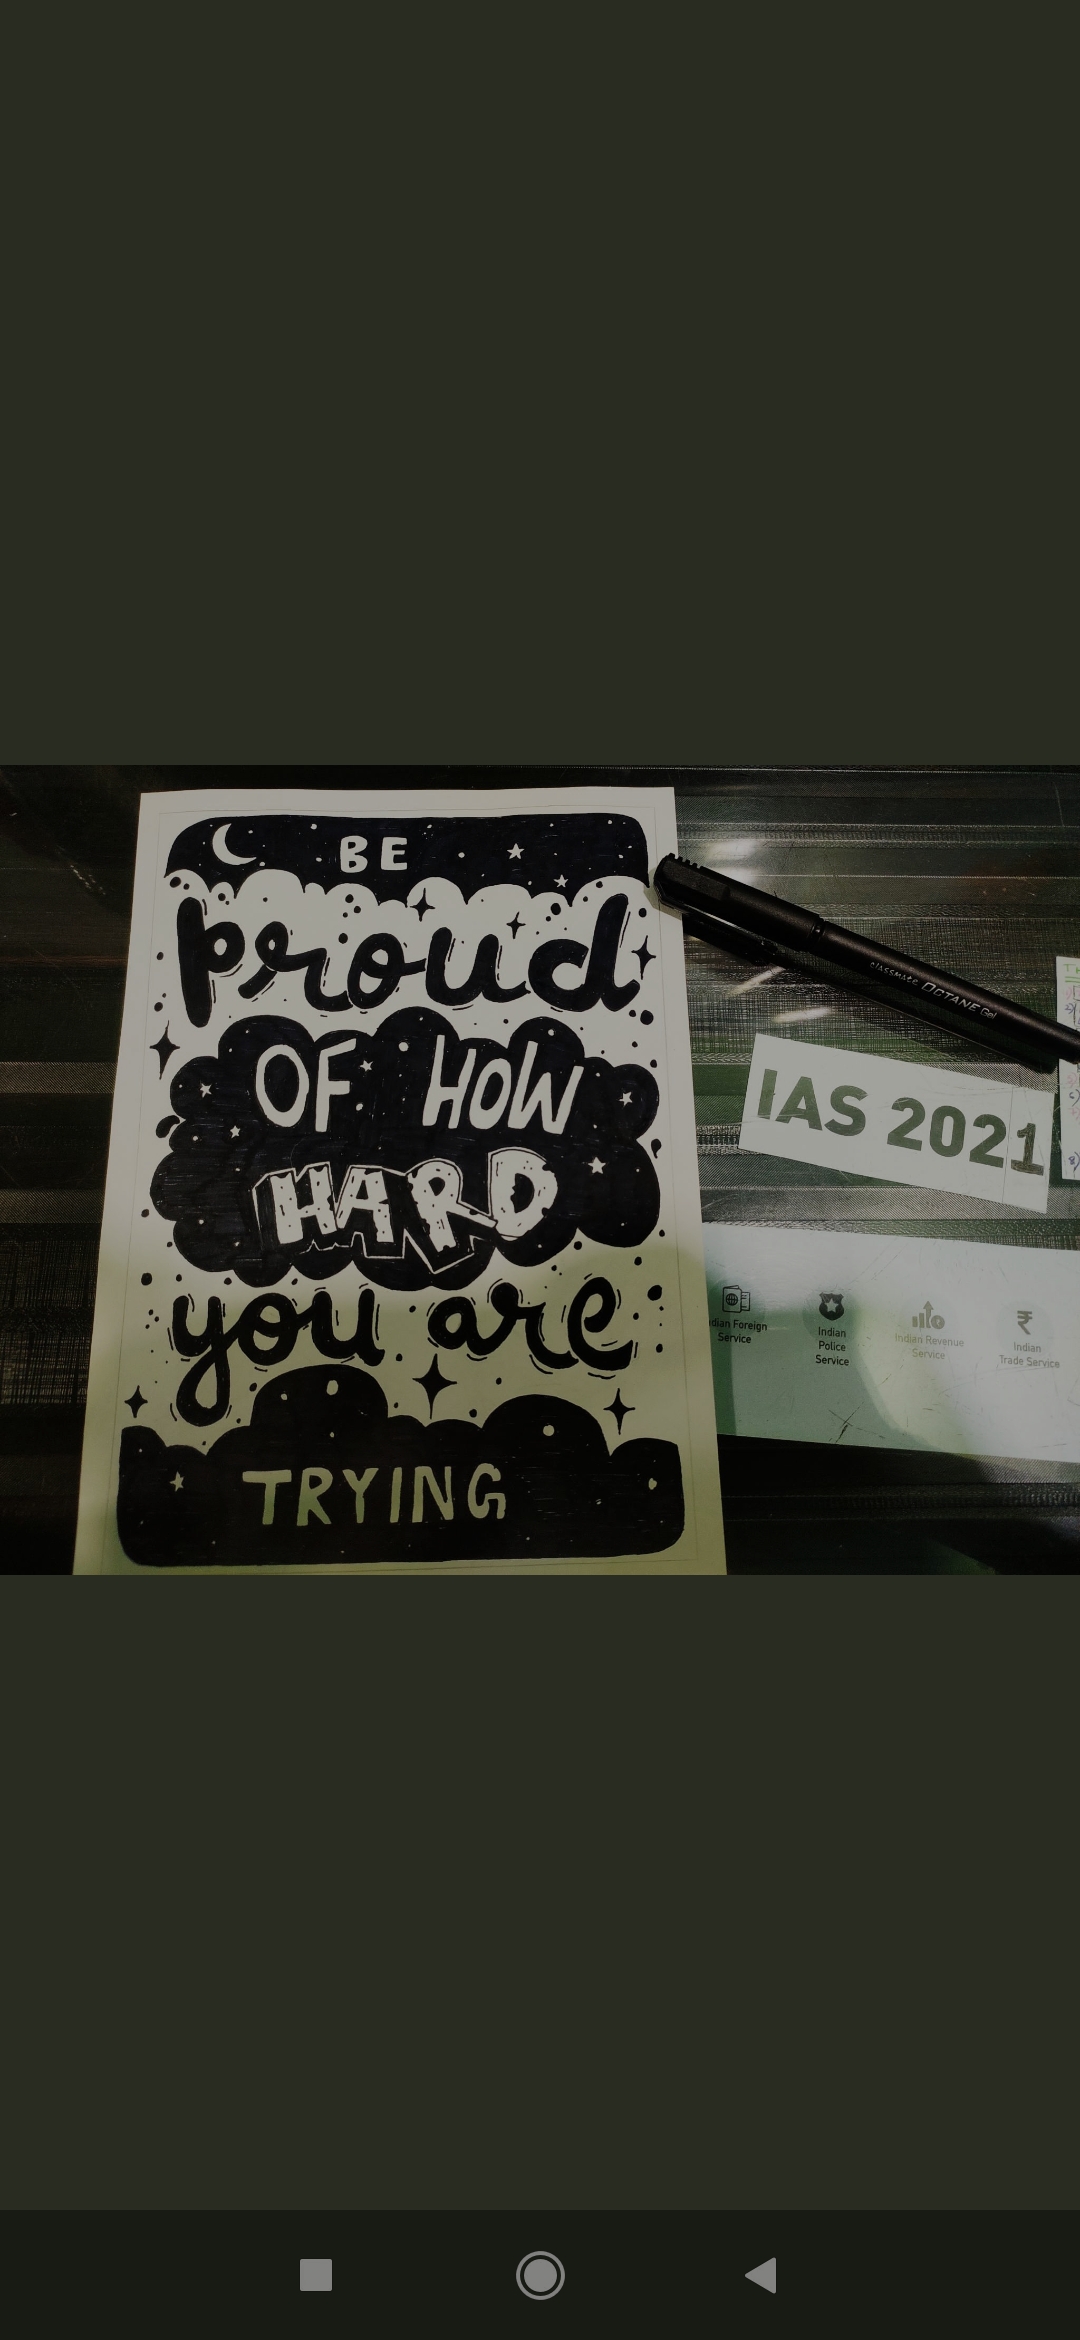 BE
proud
OF HOW
HARD
you are
TRYING
classmate OCTANE Gel
IAS 2021
Indian Foreign
Service
Indian
Police
Service
Indian Revenue
Service
₹
Indian
Trade Service